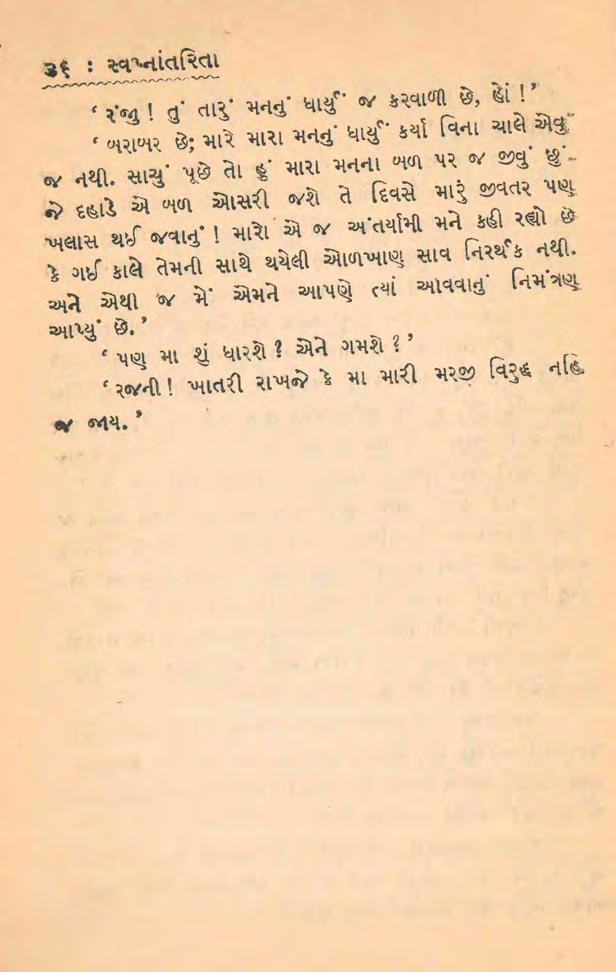 ૩૬ : સ્વપ્નાંતરિતા
‘ રંજુ ! તું તારું મનનું ધાર્યું જ કરવાળી છે, હોં !’
‘ બરાબર છે; મારે મારા મનનું ધાર્યું કર્યા વિના ચાલે એવું
જ નથી. સાચું પૂછે તો હું મારા મનના બળ પર જ જીવું છું-
જે દહાડે એ બળ ઓસરી જશે તે દિવસે મારું જીવતર પણ
ખલાસ થઈ જવાનું ! મારો એ જ અંતર્યામી મને કહી રહ્યો છે
કે ગઈ કાલે તેમની સાથે થયેલી ઓળખાણ સાવ નિરર્થક નથી.
અને એથી જ મેં એમને આપણે ત્યાં આવવાનું નિમંત્રણ
આપ્યું છે.’
‘ પણ મા શું ધારશે ? એને ગમશે ?’
‘ રજની ! ખાતરી રાખજે કે મા મારી મરજી વિરુદ્ધ નહિ
જ જાય. ’